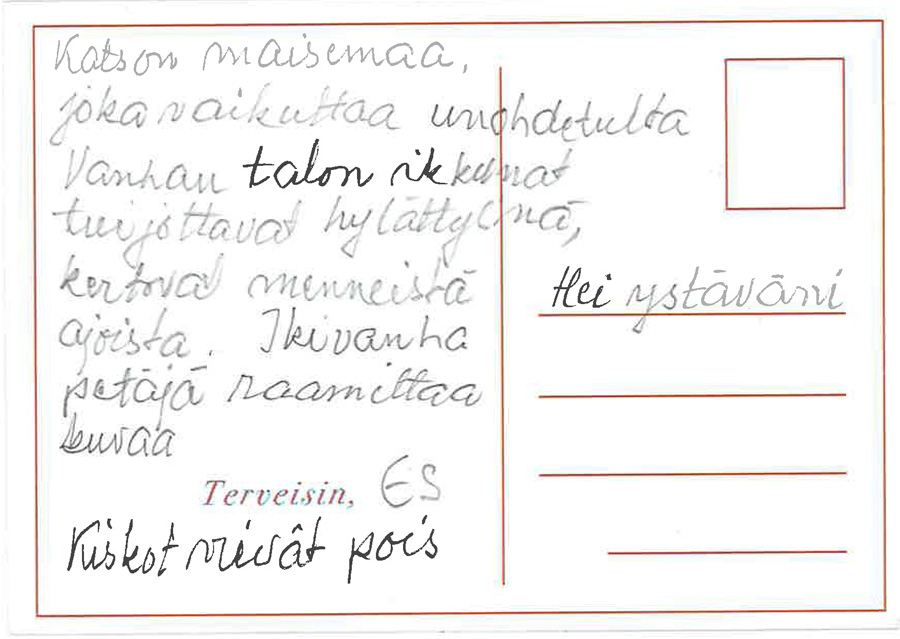 Katson maisemaa,
joka vaikuttaa unohdetulta
Vanhan talon ikkunat
tuijottavat hylättyinä,
kertovat menneistä
ajoista. Ikivanha
petäjä raamittaa
kuvaa
Terveisin, ES
Kiskot vievät pois
Hei ystäväni